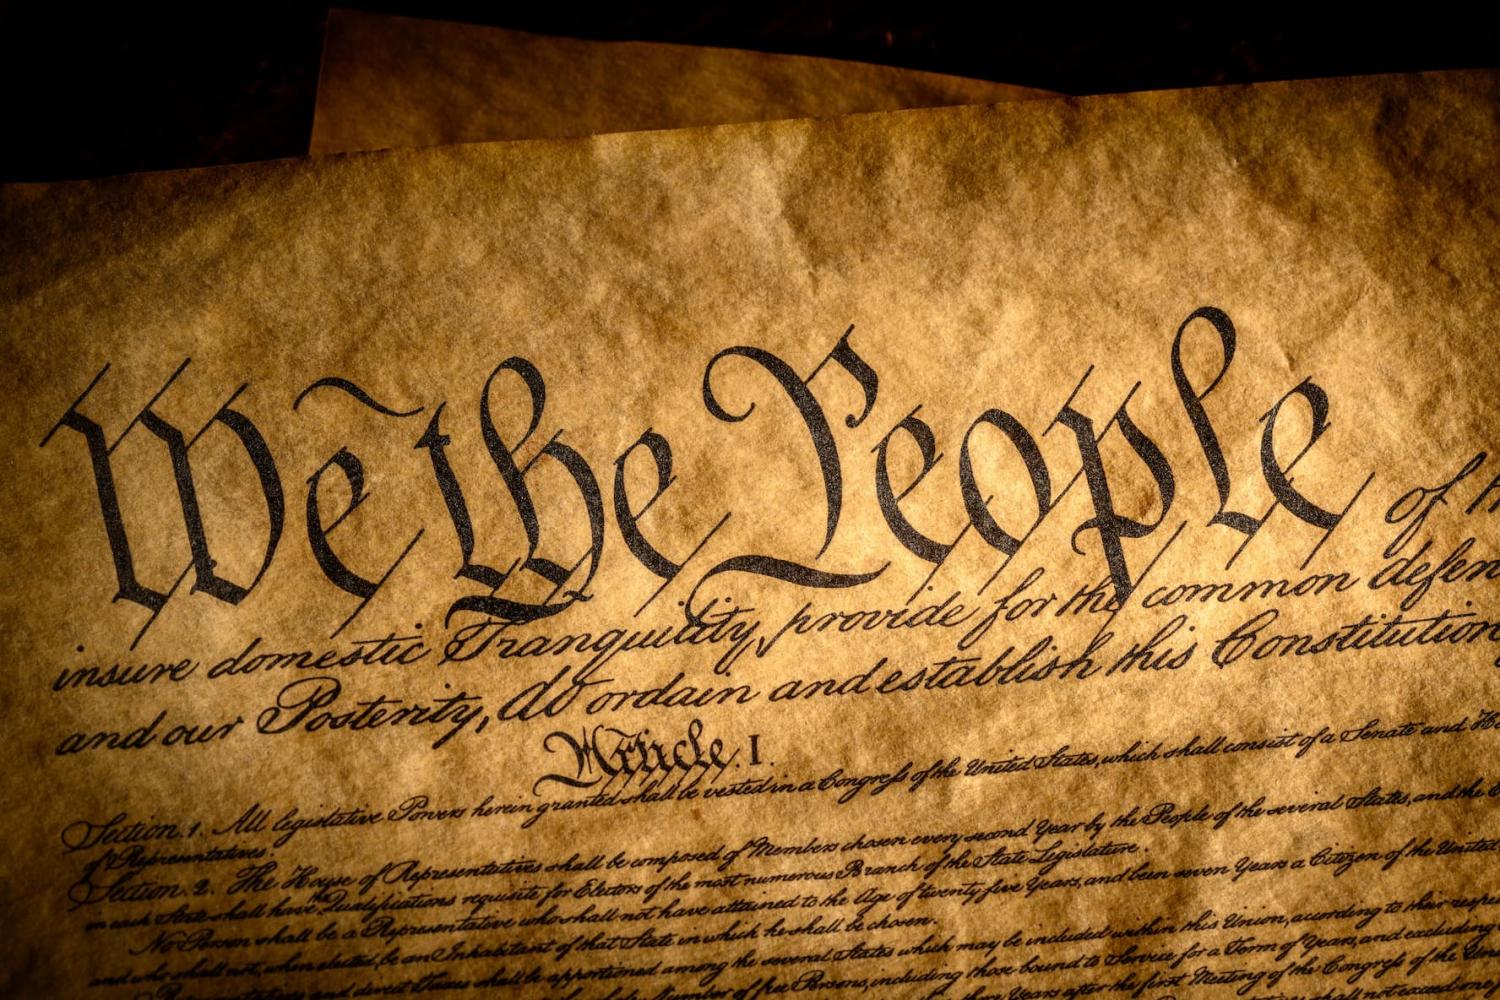 We the People of
insure domestic Tranquility, provide for the common defen
and our Posterity, do ordain and establish this Constitution
Article. I.
Section. 1. All legislative Powers herein granted shall be vested in a Congress of the United States, which shall consist of a Senate and Ho
of Representatives.
Section. 2. The House of Representatives shall be composed of Members chosen every second Year by the People of the several States, and the E
in each State shall have Qualifications requisite for Electors of the most numerous Branch of the State Legislature.
No Person shall be a Representative who shall not have attained to the Age of twenty five Years, and been seven Years a Citizen of the United
and who shall not, when elected, be an Inhabitant of that State in which he shall be chosen.
Representatives and direct Taxes shall be apportioned among the several States which may be included within this Union, according to their respe
Number of free Persons, including those bound to Service for a Term of Years, and excluding
Years after the first Meeting of the Congress of the Uni